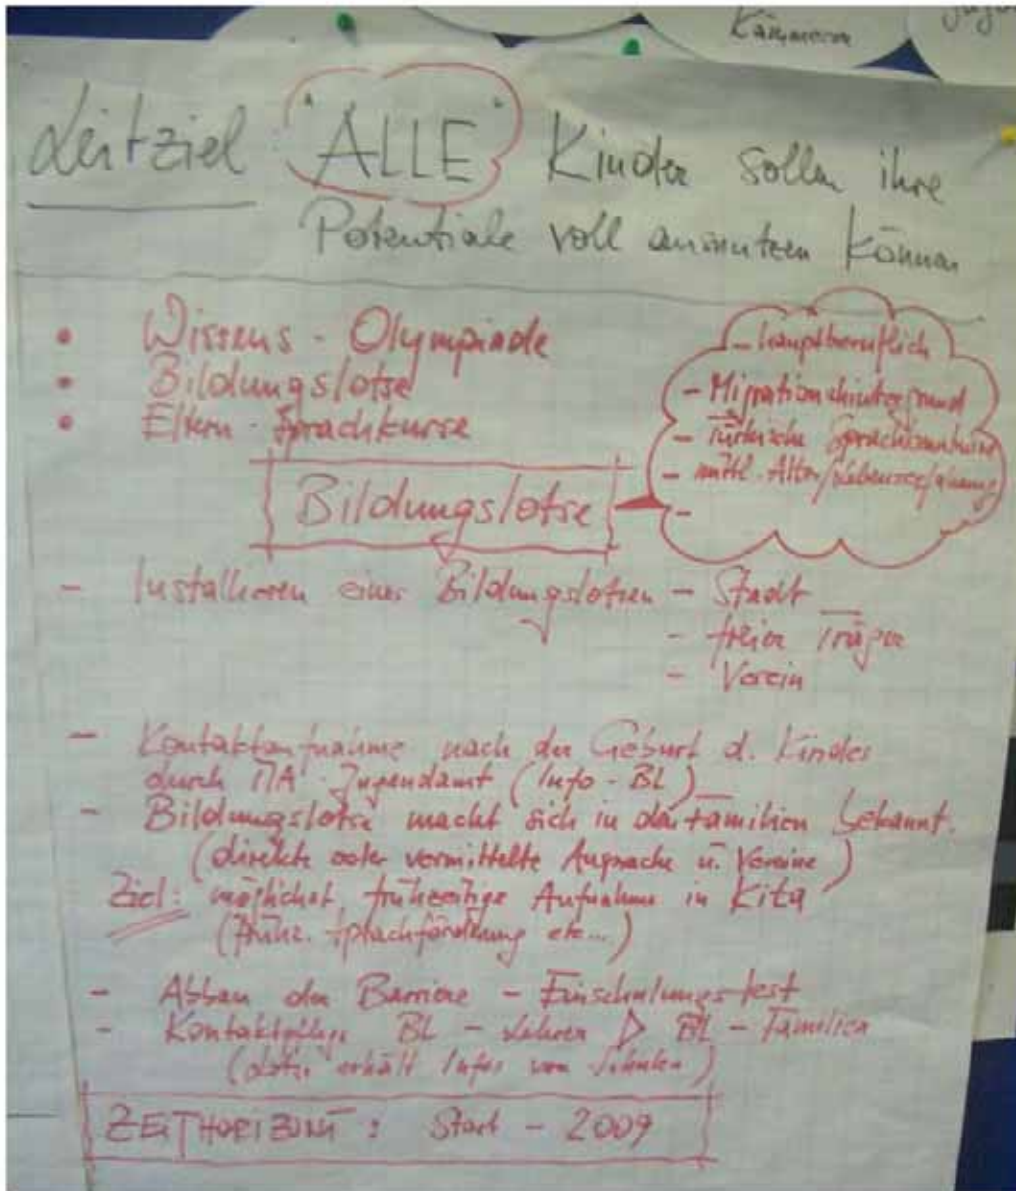 Kämmerer
Leitziel: "ALLE" Kinder sollen ihre
Potentiale voll ausnutzen können
• Wissens - Olympiade
• Bildungslotse
• Eltern - Sprachkurse
- hauptberuflich
- Migrationshintergrund
- Türkische Sprachkenntnisse
- mittl. Alter/Lebenserfahrung
-
Bildungslotse
- Installieren eines Bildungslotsen - Stadt
- freier Träger
- Verein
- Kontaktaufnahme nach der Geburt d. Kindes
durch MA Jugendamt (Info - BL)
- Bildungslotse macht sich in den Familien bekannt.
(direkte oder vermittelte Ansprache ü. Vereine)
Ziel: möglichst frühzeitige Aufnahme in Kita
(frühz. Sprachförderung etc...)
- Abbau der Barriere - Einschulungstest
- Kontaktpflege BL - Lehrer ▷ BL - Familien
(Lotse erhält Infos von Schulen)
ZEITHORIZONT: Start - 2009